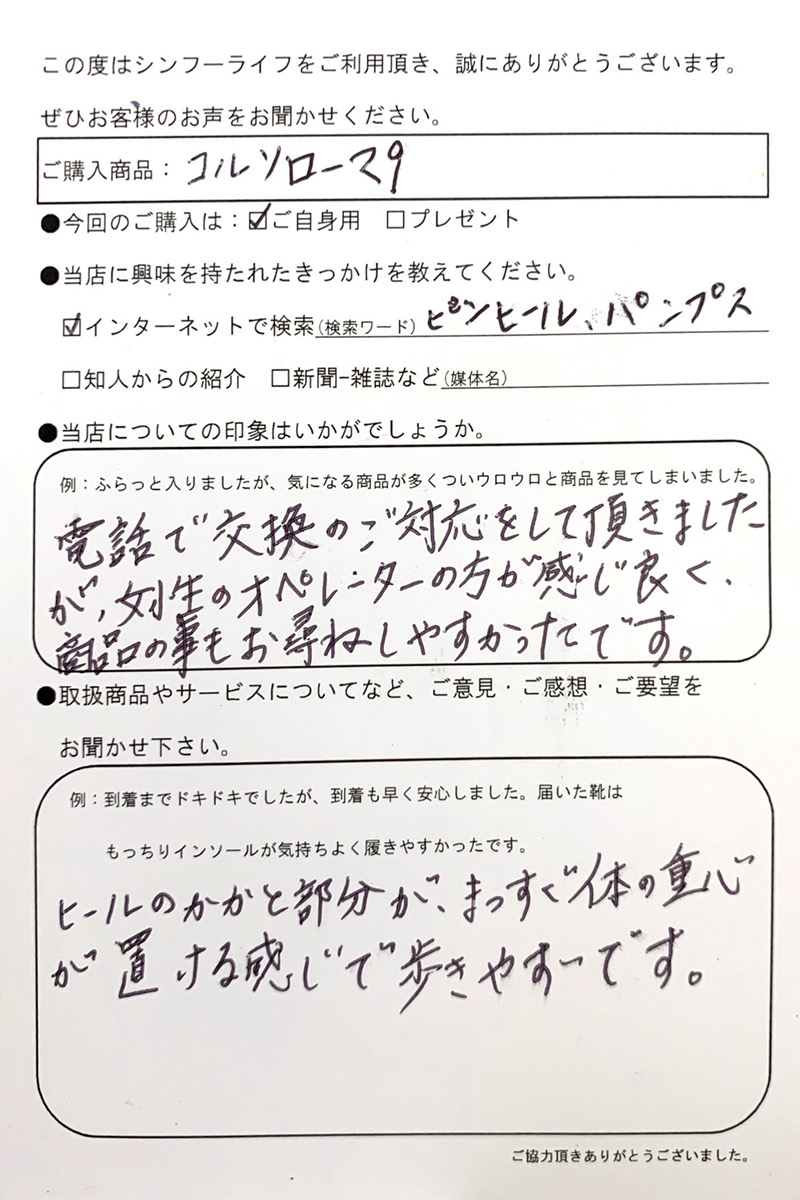 この度はシンフーライフをご利用頂き、誠にありがとうございます。
ぜひお客様のお声をお聞かせください。
ご購入商品：コルソローマ9
●今回のご購入は：☑ご自身用 □プレゼント
●当店に興味を持たれたきっかけを教えてください。
☑インターネットで検索(検索ワード) ピンヒール、パンプス
□知人からの紹介 □新聞-雑誌など(媒体名)
●当店についての印象はいかがでしょうか。
例：ふらっと入りましたが、気になる商品が多くついウロウロと商品を見てしまいました。
電話で交換のご対応をして頂きました
が、女性のオペレーターの方が感じ良く、
商品の事もお尋ねしやすかったです。
●取扱商品やサービスについてなど、ご意見・ご感想・ご要望を
お聞かせ下さい。
例：到着までドキドキでしたが、到着も早く安心しました。届いた靴は
もっちりインソールが気持ちよく履きやすかったです。
ヒールのかかと部分が、まっすぐ体の重心
が置ける感じで歩きやすーです。
ご協力頂きありがとうございました。